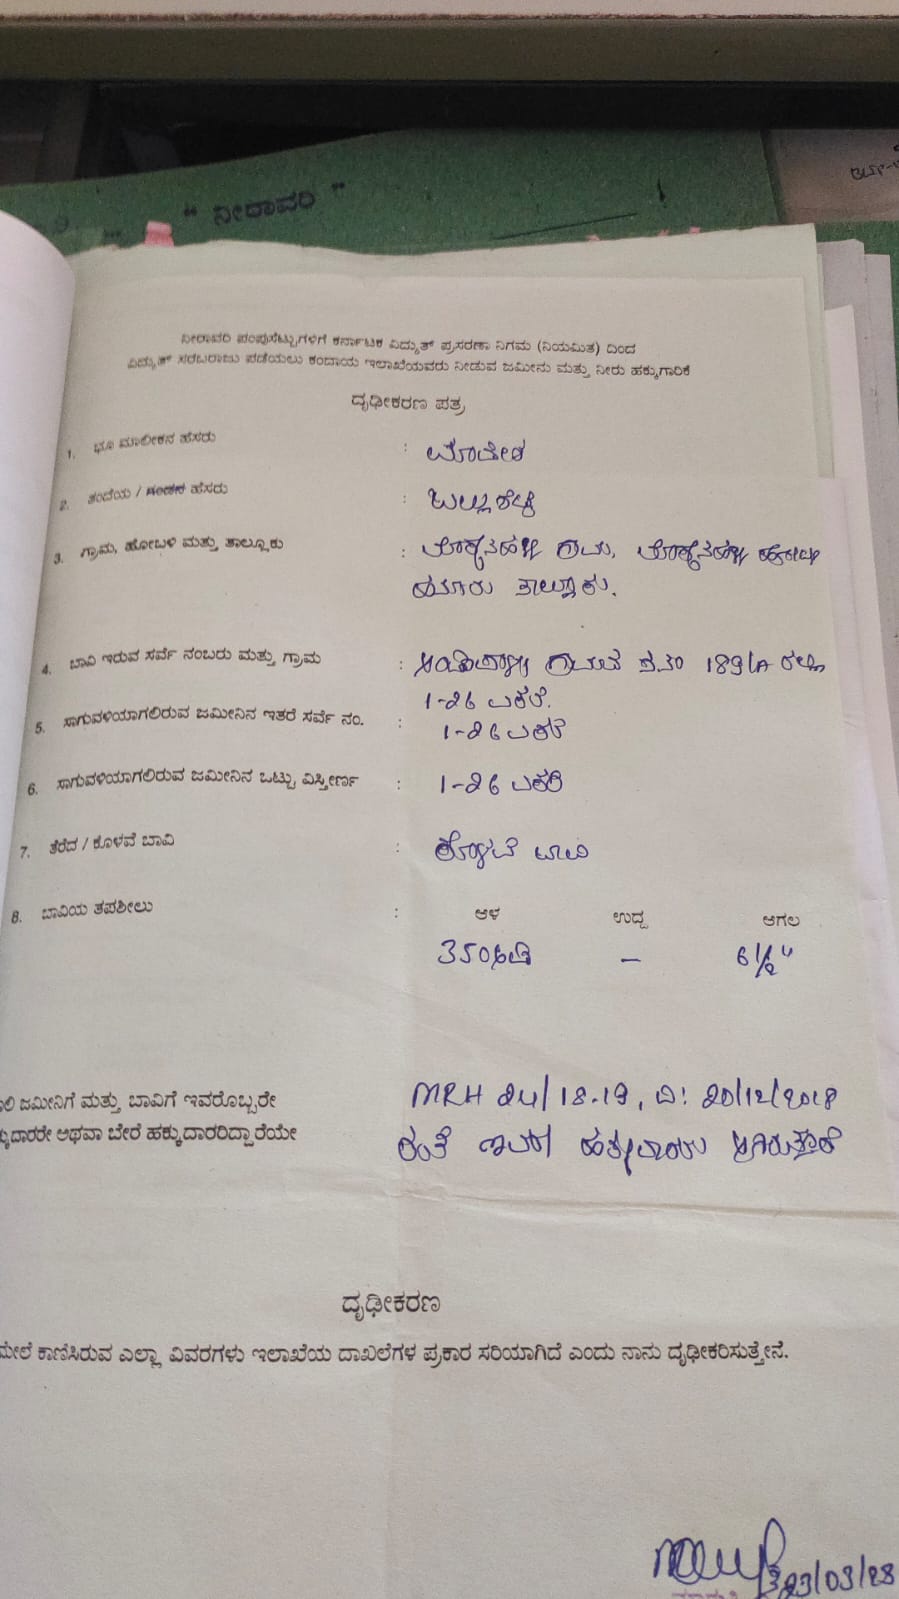 " ನೀರಾವರಿ "
ನೀರಾವರಿ ಪಂಪುಸೆಟ್ಟುಗಳಿಗೆ ಕರ್ನಾಟಕ ವಿದ್ಯುತ್ ಪ್ರಸರಣಾ ನಿಗಮ (ನಿಯಮಿತ) ದಿಂದ
ವಿದ್ಯುತ್ ಸರಬರಾಜು ಪಡೆಯಲು ಕಂದಾಯ ಇಲಾಖೆಯವರು ನೀಡುವ ಜಮೀನು ಮತ್ತು ನೀರು ಹಕ್ಕುಗಾರಿಕೆ
ದೃಢೀಕರಣ ಪತ್ರ
1. ಭೂ ಮಾಲೀಕನ ಹೆಸರು :
2. ತಂದೆಯ / ಗಂಡನ ಹೆಸರು :
3. ಗ್ರಾಮ, ಹೋಬಳಿ ಮತ್ತು ತಾಲ್ಲೂಕು :
ತಾಲ್ಲೂಕು.
4. ಬಾವಿ ಇರುವ ಸರ್ವೆ ನಂಬರು ಮತ್ತು ಗ್ರಾಮ : ಗ್ರಾಮದ ಸ.ನಂ 189/A ರಲ್ಲಿ
1-26 ಎಕರೆ.
5. ಸಾಗುವಳಿಯಾಗಲಿರುವ ಜಮೀನಿನ ಇತರೆ ಸರ್ವೆ ನಂ. : 1-26 ಎಕರೆ
6. ಸಾಗುವಳಿಯಾಗಲಿರುವ ಜಮೀನಿನ ಒಟ್ಟು ವಿಸ್ತೀರ್ಣ : 1-26 ಎಕರೆ
7. ತೆರೆದ / ಕೊಳವೆ ಬಾವಿ : ಕೊಳವೆ ಬಾವಿ
8. ಬಾವಿಯ ತಪಶೀಲು : ಆಳ ಉದ್ದ ಅಗಲ
350 ಅಡಿ – 6 1/2"
ಜಮೀನಿಗೆ ಮತ್ತು ಬಾವಿಗೆ ಇವರೊಬ್ಬರೇ MRH 24/18-19, ದಿ: 20/12/2018
ಅಥವಾ ಬೇರೆ ಹಕ್ಕುದಾರರಿದ್ದಾರೆಯೇ ರಂತೆ ಇವರೇ ಹಕ್ಕುದಾರರು ಆಗಿರುತ್ತಾರೆ
ದೃಢೀಕರಣ
ಮೇಲೆ ಕಾಣಿಸಿರುವ ಎಲ್ಲಾ ವಿವರಗಳು ಇಲಾಖೆಯ ದಾಖಲೆಗಳ ಪ್ರಕಾರ ಸರಿಯಾಗಿದೆ ಎಂದು ನಾನು ದೃಢೀಕರಿಸುತ್ತೇನೆ.